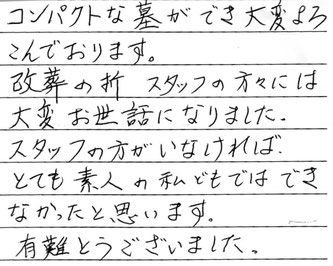 コンパクトな墓ができ大変よろ
こんでおります。
改葬の折 スタッフの方々には
大変お世話になりました。
スタッフの方がいなければ、
とても素人の私どもではでき
なかったと思います。
有難とうございました。